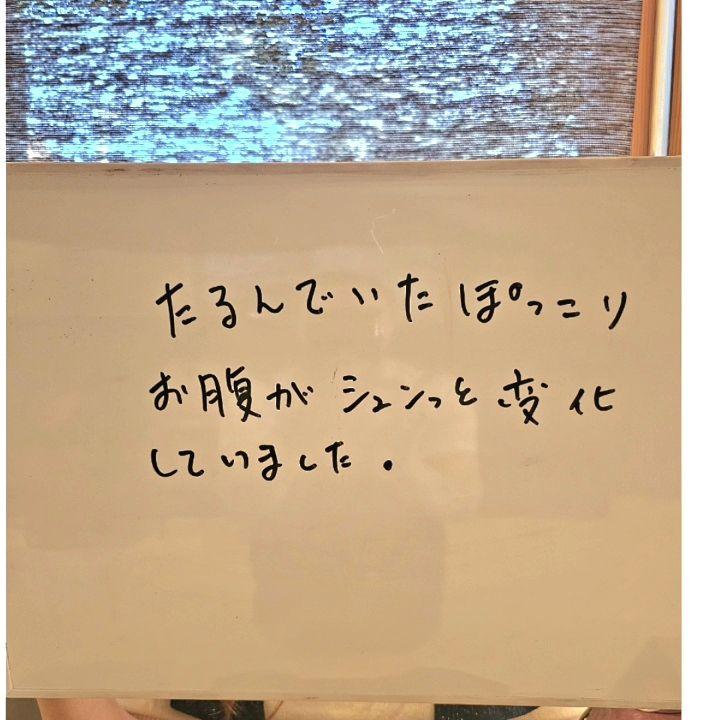 たるんでいたぽっこり
お腹がシュンっと変化
していました.